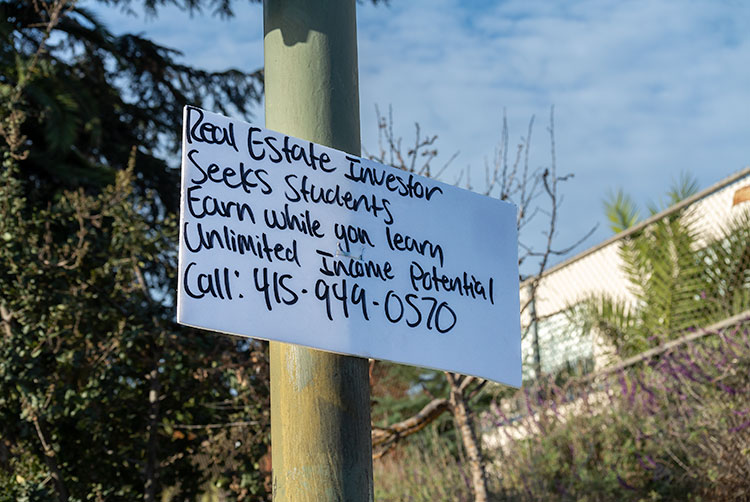 Real Estate Investor
Seeks Students
Earn while you learn
Unlimited Income Potential
Call: 415-949-0570